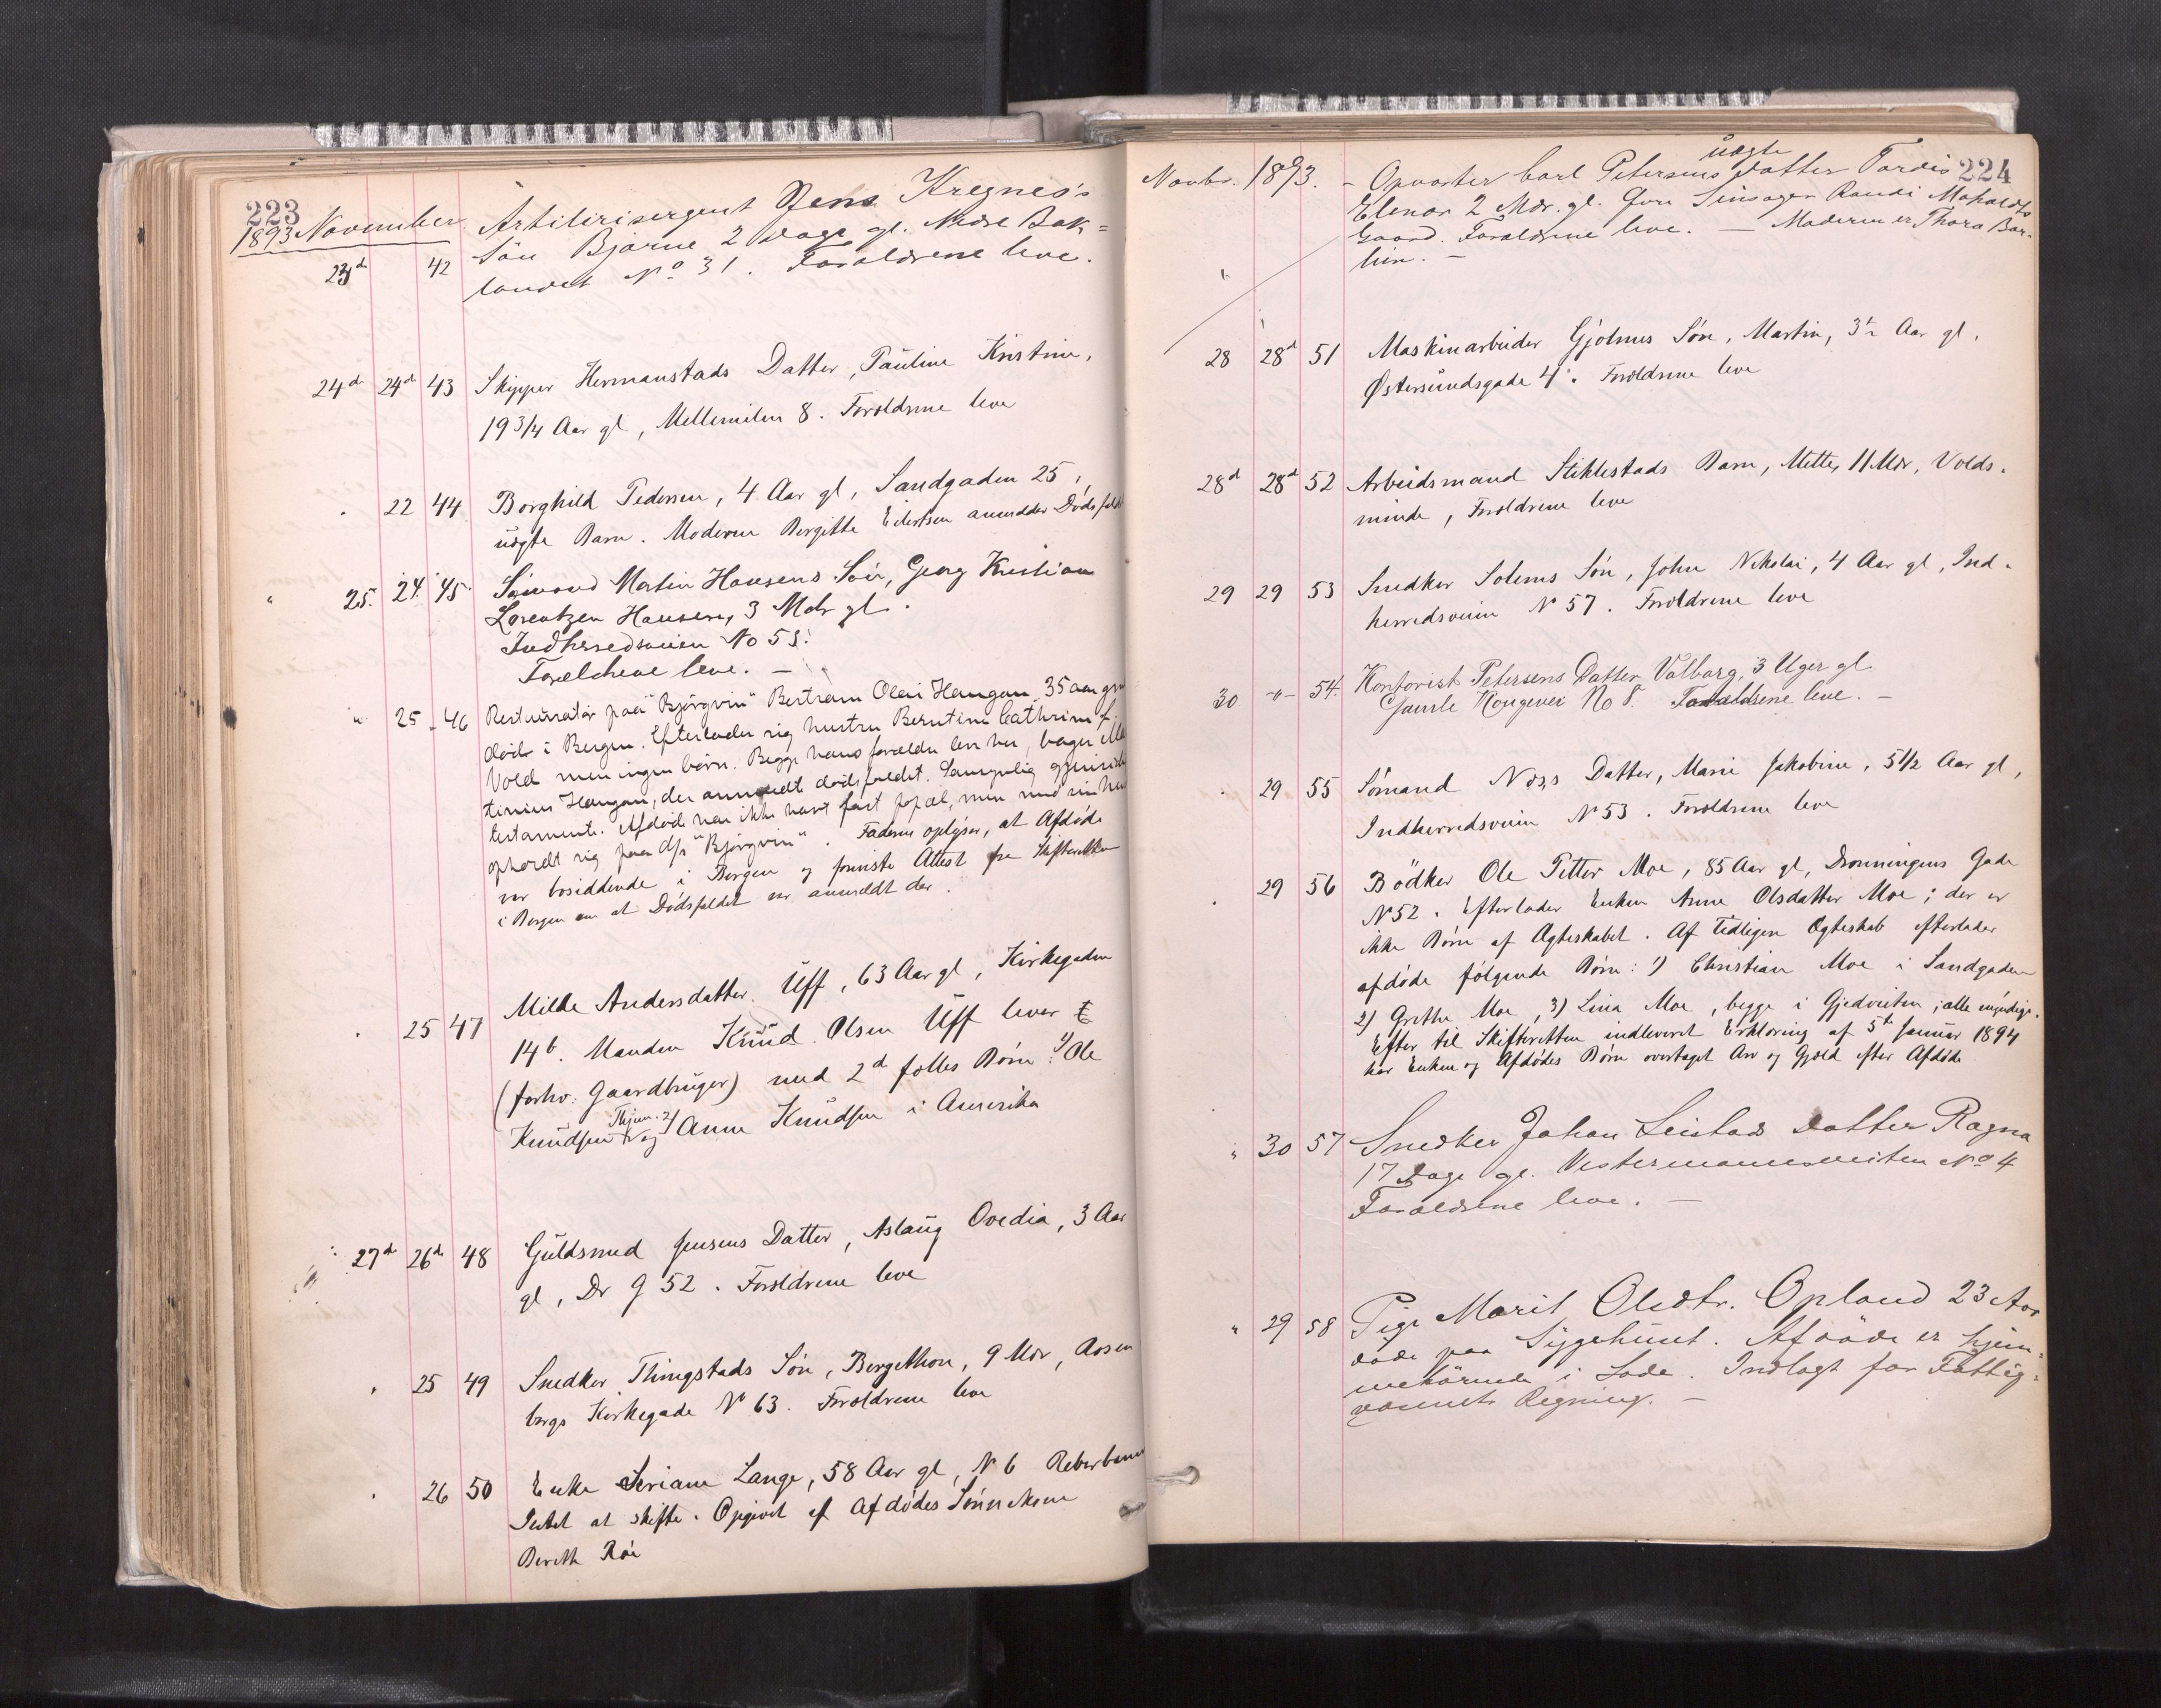 223
1893 November
Artilerisergent Jens Kregnes's
23d 42 Sön Bjarne 2 Dage gl. Nedre Bak=
landet No 31. Forældrene leve.
24d 24d 43 Skipper Hermanstads Datter, Pauline Kristine,
19 3/4 Aar gl, Mellemilen 8. Forældrene leve
22 44 Borghild Pedersen, 4 Aar gl, Sandgaden 25,
uægte Barn. Moderen Bergitte Eilertsen anmelder Dödsfaldet
" 25. 24. 45. Sömand Martin Hansens Sön, Georg Kristian
Lorentzen Hansen, 3 Mdr gl.
Indherredsveien No 53.
Forældrene leve. —
" 25 - 46 Restauratör paa "Björgvin" Bertram Olai Haugan 35 aar gml
död i Bergen. Efterlader sig hustru Berntine Cathrine f.
Vold men ingen börn. Begge hans forældre lever her, bager Mar
tinius Haugan, der anmeldt dödsfaldet. gjensidigt
testamente. Afdöde har ikke havt fast bopæl, men med sin hustru
opholdt sig paa d/s "Björgvin". Faderen oplyser, at Afdöde
var bosiddende i Bergen og foreviste Attest fra Skifteretten
i Bergen om at Dödsfaldet var anmeldt der.
25 47 Milde Andersdatter Uff, 63 Aar gl, Kirkegaden
14b. Manden Knud Olsen Uff lever
(forhv. Gaardbruger) med 2d fælles Börn: 1) Ole
Knudsen Thjem. og 2) Anne Knudsen i Amerika
27d 26d 48 Guldsmed Jensens Datter, Aslaug Ovedia, 3 Aar
gl, Dr G 52. Forældrene leve
25 49 Snedker Thingstads Sön, Bergithon, 9 Mdr, Rosen
borgs Kirkegade N 63. Forældrene leve
26 50 Enke Seriane Lange, 58 Aar gl, N 6 Reberbanen
Intet at skifte. Opgivet af Afdödes Sönnekone
Bereth Röe
224
Novbr. 1893. - Opvarter Carl Petersens uægte Datter Tordis
Elenor 2 Mdr. gl. Gaard. Forældrene leve. — Moderen er Thora Bar-
lien. —
28 28d 51 Maskinarbeider Gjölmes Sön, Martin, 3½ Aar gl,
Östersundsgade 4. Forældrene leve
28d 28d 52 Arbeidsmand Stiklestads Barn, Mette, 11 Mdr, Volds-
minde, Forældrene leve
29 29 53 Snedker Solems Sön, John Nikolai, 4 Aar gl, Ind-
herredsveien N 57. Forældrene leve
30 -"- 54. Kontorist Petersens Datter Valborg, 3 Uger gl
Gamle Kongevei No 8. Forældrene leve. —
29 55 Sömand Næss Datter, Marie Jakobine, 5 1/2 Aar gl,
Indherredsveien N 53. Forældrene leve
29 56 Bödker Ole Petter Moe, 85 Aar gl, Dronningens Gade
N 52. Efterlader Enken Anne Olsdatter Moe; der er
ikke Börn af Ægteskabet. Af tidligere Ægteskab efterlader
afdöde fölgende Börn: 1) Christian Moe i Sandgaden
2) Grethe Moe, 3) Lina Moe, begge i Gjedveiten; alle myndige.
Efter til Skifteretten indleveret Erklæring af 5te Januar 1894
har Enken og Afdödes Börn overtaget Arv og Gjæld efter Afdöde.
" 30 57 Snedker Johan Leistads Datter Ragna
17 Dage gl. Vestermannsveiten No 4
Forældrene leve. —
" 29 58 Pige Marit Olsdtr. Opland 23 Aar
döde paa Sygehuset. Afdöde er hjem-
mehörende i Lade. Indlagt for Fattig-
væsenets Regning. —